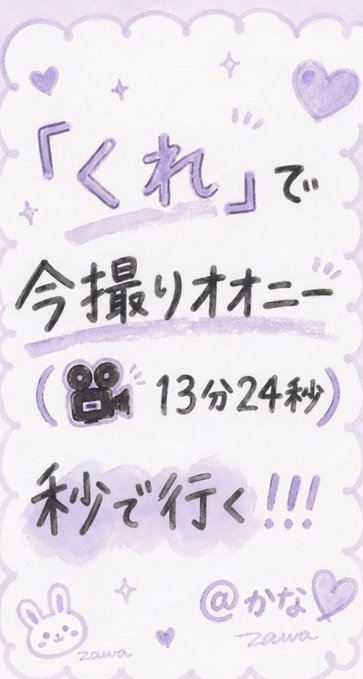 「くれ」で
今撮りオオニー
(13分24秒)
秒で行く!!!
@かな
zawa
zawa